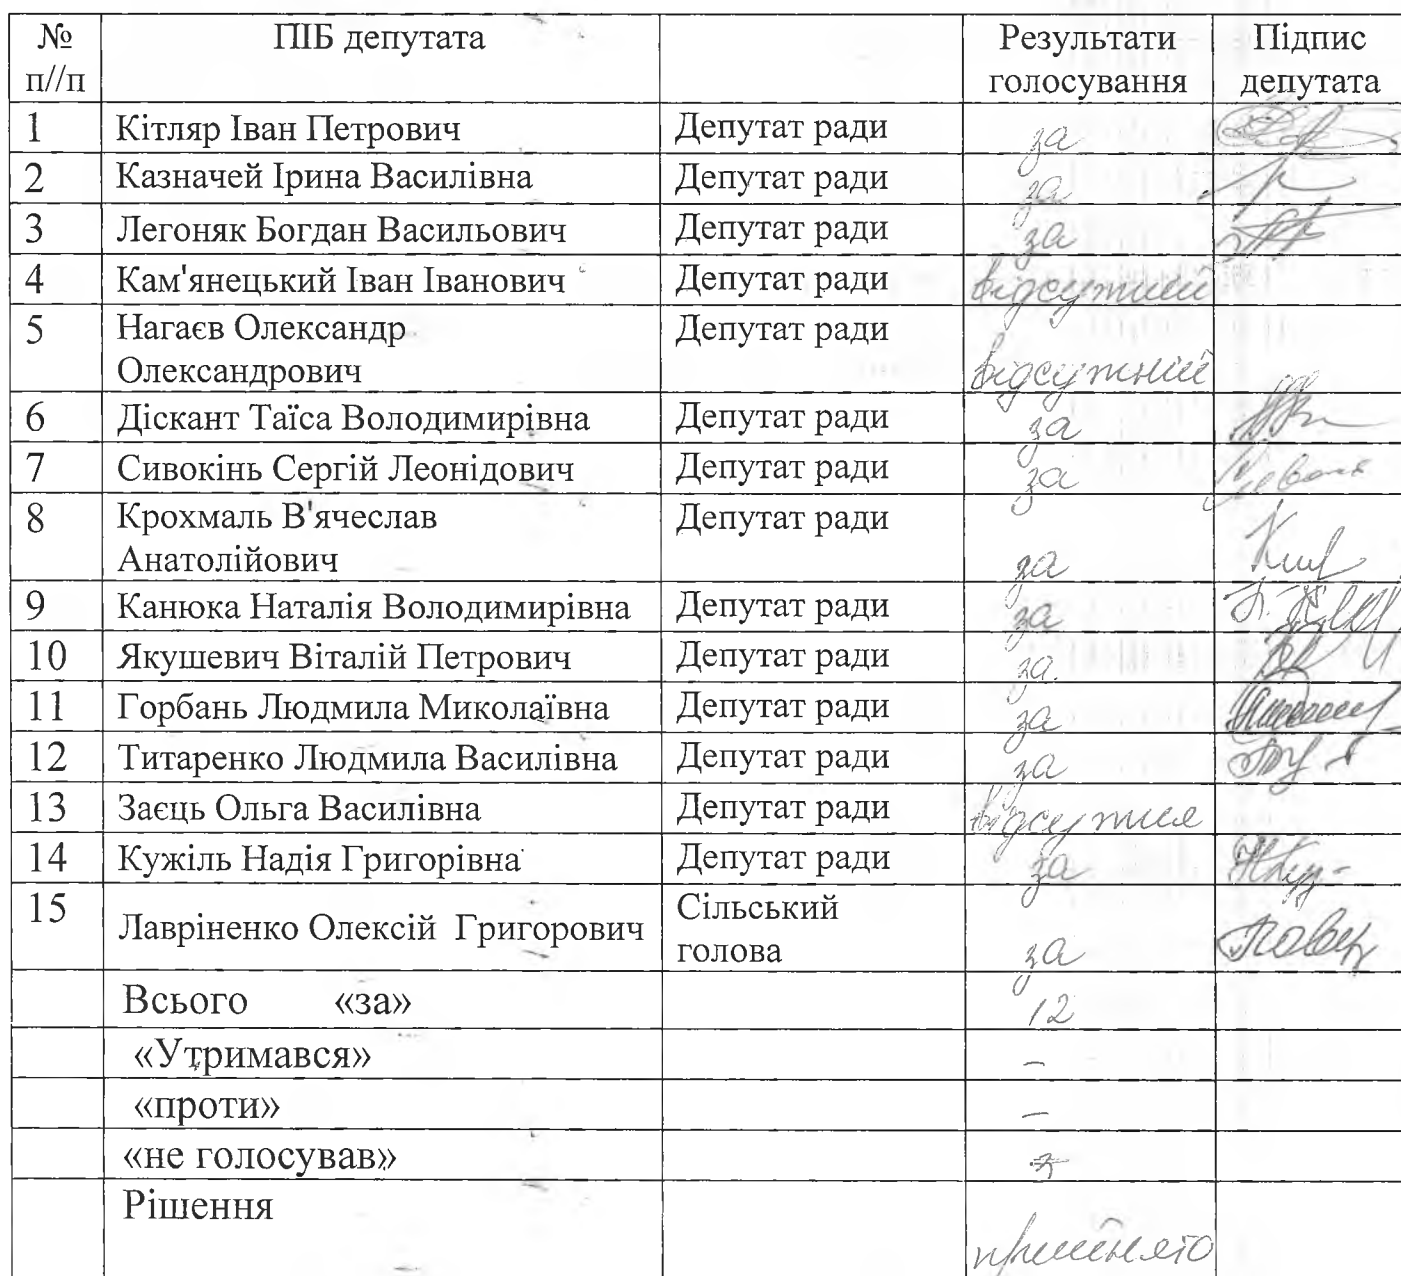 № ПІБ депутата Результати Підпис
п//п голосування депутата
1 Кітляр Іван Петрович Депутат ради за
2 Казначей Ірина Василівна Депутат ради за
3 Легоняк Богдан Васильович Депутат ради за
4 Кам'янецький Іван Іванович Депутат ради відсутній
5 Нагаєв Олександр Депутат ради
Олександрович відсутній
6 Діскант Таїса Володимирівна Депутат ради за
7 Сивокінь Сергій Леонідович Депутат ради за
8 Крохмаль В'ячеслав Депутат ради
Анатолійович за
9 Канюка Наталія Володимирівна Депутат ради за
10 Якушевич Віталій Петрович Депутат ради за
11 Горбань Людмила Миколаївна Депутат ради за
12 Титаренко Людмила Василівна Депутат ради за
13 Заєць Ольга Василівна Депутат ради відсутня
14 Кужіль Надія Григорівна Депутат ради за
15 Лавріненко Олексій Григорович Сільський
голова за
Всього «за» 12
«Утримався» –
«проти» –
«не голосував»
Рішення
прийнято